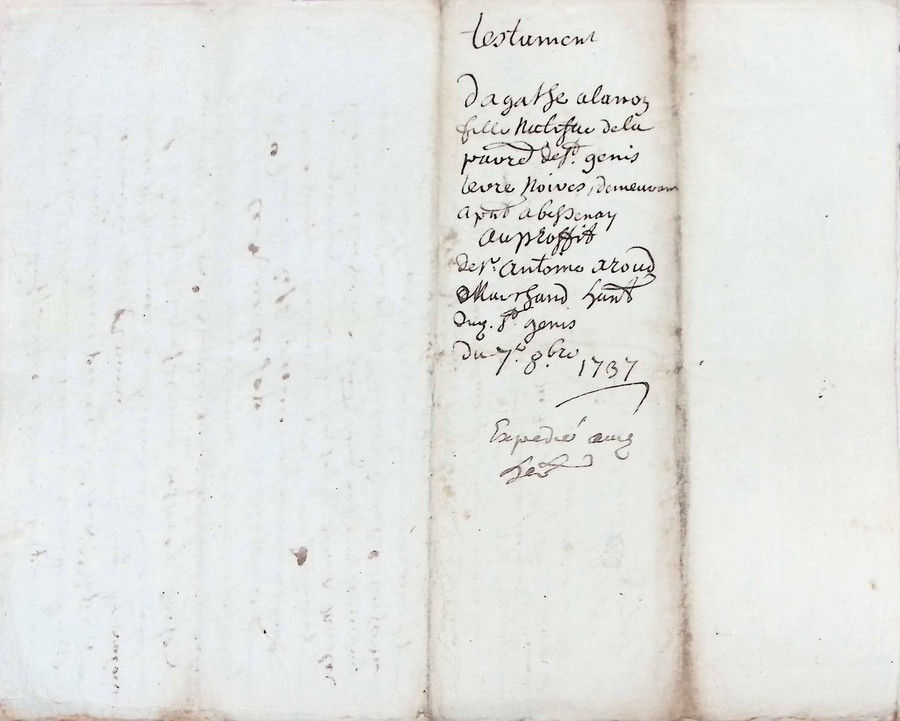 testament
dagathe alanoz
fille Natifue dela
paroud de st. genis
levre Noires, demeurant
apnt abessenay
au proffit
de sr. antoine aroud
Marchand hant
dud. st. genis
du 7e. 8.bre 1737
Expedié aud
her